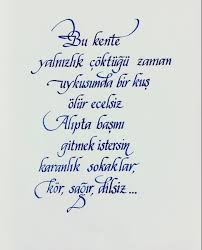 Bu kente
yalnızlık çöktüğü zaman
uykusunda bir kuş
ölür ecelsiz
Alıpta başını
gitmek istersin
karanlık sokaklar,
kör, sağır, dilsiz ...